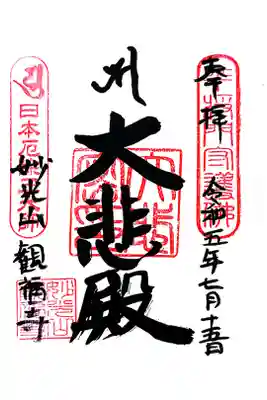 奉拝
令和五年七月十五日
守護佛
大悲殿
日本厄
妙光山
観福寺